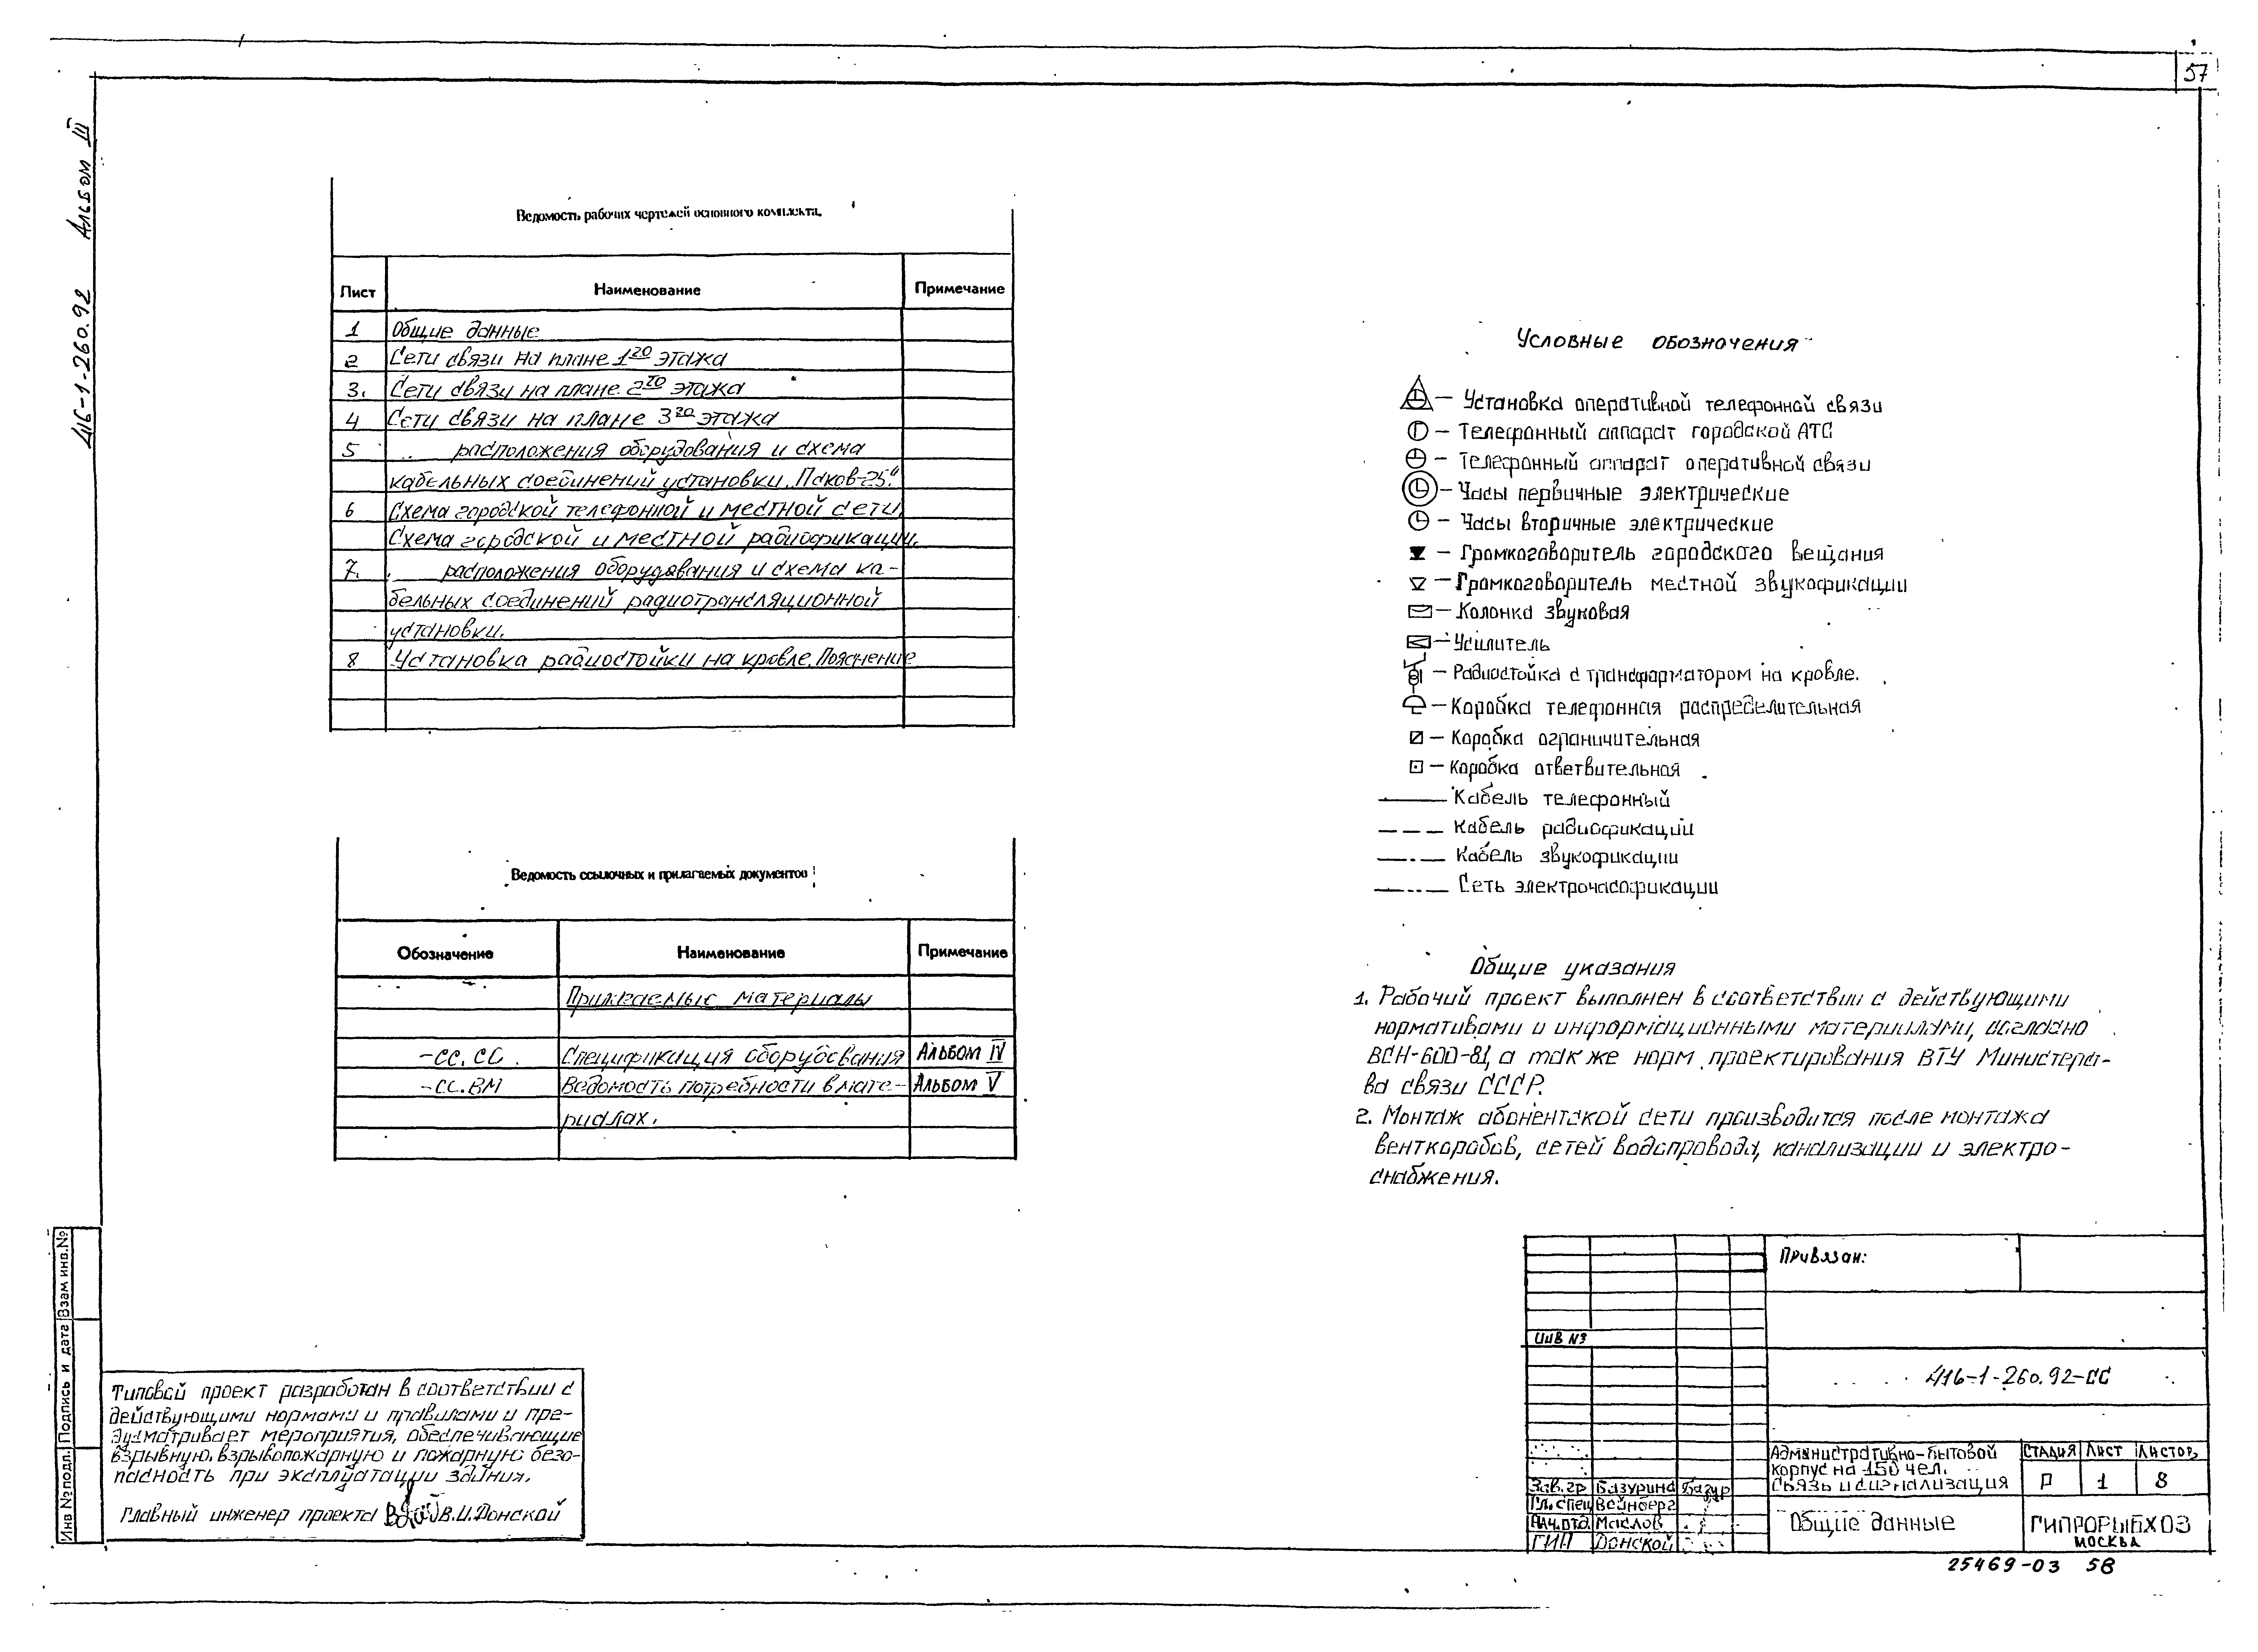 57
416-1-260.92 Альбом III
Ведомость рабочих чертежей основного комплекта.
Лист Наименование Примечание
1 Общие данные
2 Сети связи на плане 1го этажа
3. Сети связи на плане 2го этажа
4 Сети связи на плане 3го этажа
5 расположения оборудования и схема
кабельных соединений установки „Псков-25"
6 Схема городской телефонной и местной сети.
Схема городской и местной радиофикации.
7. расположения оборудования и схема ка-
бельных соединений радиотрансляционной
установки.
8 Установка радиостойки на кровле. Пояснение
Ведомость ссылочных и прилагаемых документов
Обозначение Наименование Примечание
Прилагаемые материалы
-СС.СО Спецификация оборудования Альбом IV
-СС.ВМ Ведомость потребности в мате- Альбом V
риалах.
Условные обозначения
— Установка оперативной телефонной связи
— Телефонный аппарат городской АТС
— Телефонный аппарат оперативной связи
— Часы первичные электрические
— Часы вторичные электрические
— Громкоговоритель городского вещания
— Громкоговоритель местной звукофикации
— Колонка звуковая
— Усилитель
— Радиостойка с трансформатором на кровле.
— Коробка телефонная распределительная
— Коробка ограничительная
— Коробка ответвительная
Кабель телефонный
Кабель радиофикации
Кабель звукофикации
Сеть электрочасофикации
Общие указания
1. Рабочий проект выполнен в соответствии с действующими
нормативами и информационными материалами, согласно
ВСН-600-81, а также норм проектирования ВТУ Министерст-
ва связи СССР.
2. Монтаж абонентской сети производится после монтажа
венткоробов, сетей водопровода, канализации и электро-
снабжения.
Типовой проект разработан в соответствии с
действующими нормами и правилами и пре-
дусматривает мероприятия, обеспечивающие
взрывную, взрывопожарную и пожарную безо-
пасность при эксплуатации здания.
Главный инженер проекта В.И. Донской
Инв № подл. Подпись и дата Взам инв. №
Привязан:
Инв №
416-1-260.92-СС
Административно-бытовой
корпус на 150 чел.
Связь и сигнализация
Стадия Лист Листов
Р 1 8
Зав. гр Базурина Базур
Гл. спец Вейнберг
Нач. отд Маслов
ГИП Донской
Общие данные
ГИПРОРЫБХОЗ
МОСКВА
25469-03 58